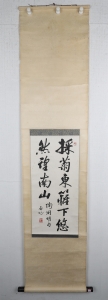 採菊東籬下悠
然望南山
陶淵明句